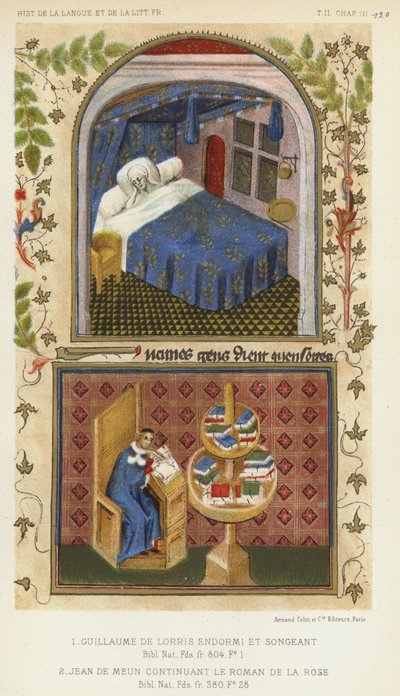 HIST. DE LA LANGUE ET DE LA LITT. FR
T. II. CHAP. III
120
Armand Colin et Cie Editeurs, Paris
1_GUILLAUME DE LORRIS ENDORMI ET SONGEANT
Bibl. Nat. Fds fr. 804, Fo 1
2_JEAN DE MEUN CONTINUANT LE ROMAN DE LA ROSE
Bibl. Nat. Fds. fr. 380, Fo 28